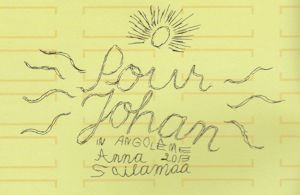 Pour
Johan
IN ANGOLÈME
Anna 2013
Sailamaa